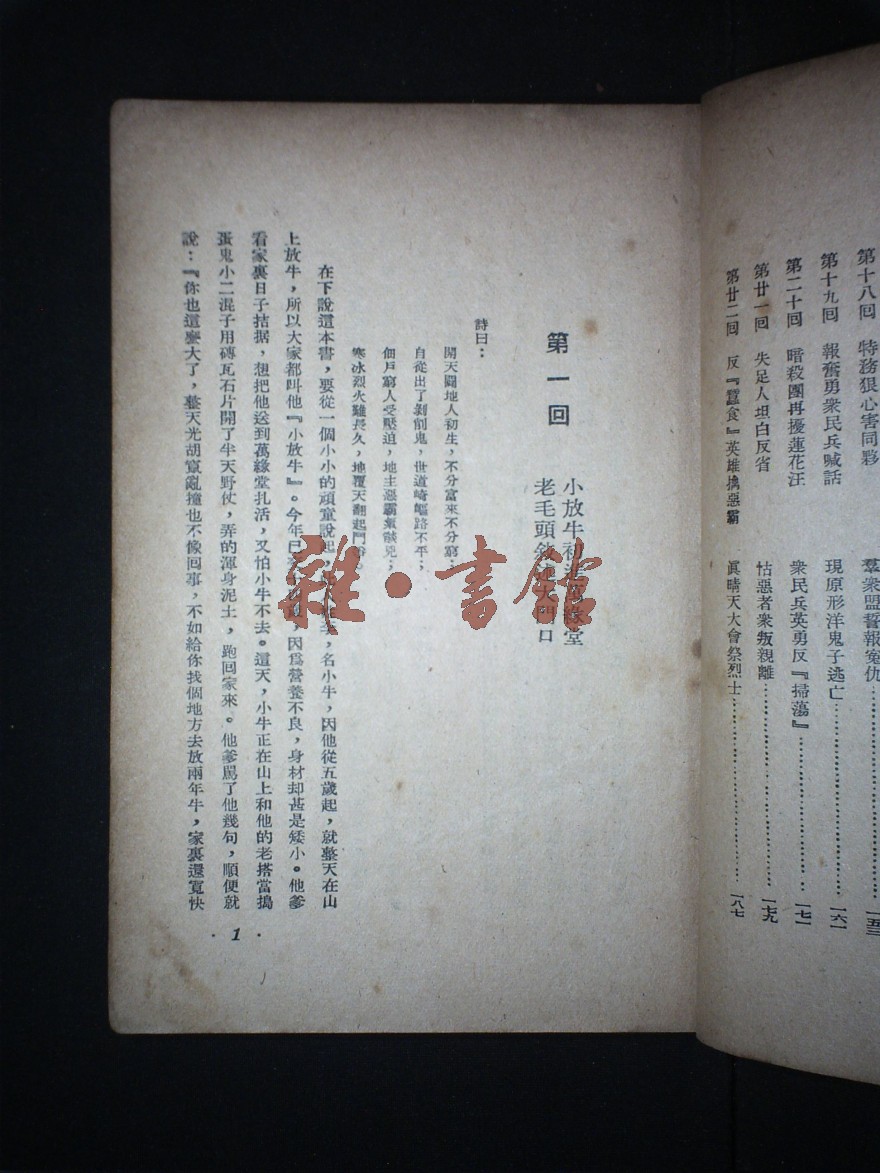 第十八回 特務狠心害同夥 羣衆盟誓報寃仇 一五三
第十九回 報奮勇衆民兵喊話 現原形洋鬼子逃亡 一六一
第二十回 暗殺團再擾蓮花汪 衆民兵英勇反『掃蕩』 一七一
第廿一回 失足人坦白反省 怙惡者衆叛親離 一七九
第廿二回 反『蠶食』英雄擒惡霸 眞晴天大會祭烈士 一八七
第一回
小放牛初 堂
老毛頭 口
詩曰：
開天闢地人初生，不分富來不分窮；
自從出了剝削鬼，世道崎嶇路不平；
佃戶窮人受壓迫，地主惡霸氣燄兇；
寒冰烈火難長久，地覆天翻起鬥爭。
在下說這本書，要從一個小小的頑童說起， 名小牛，因他從五歲起，就整天在山
上放牛，所以大家都叫他『小放牛』。今年已 因爲營養不良，身材却甚是矮小。他爹
看家裏日子拮据，想把他送到萬緣堂扎活，又怕小牛不去。這天，小牛正在山上和他的老搭當搗
蛋鬼小二混子用磚瓦石片開了半天野仗，弄的渾身泥土，跑回家來。他爹罵了他幾句，順便就
說：『你也這麽大了，整天光胡竄亂撞也不像回事，不如給你找個地方去放兩年牛，家裏還寬快
· 1 ·
雜·書館